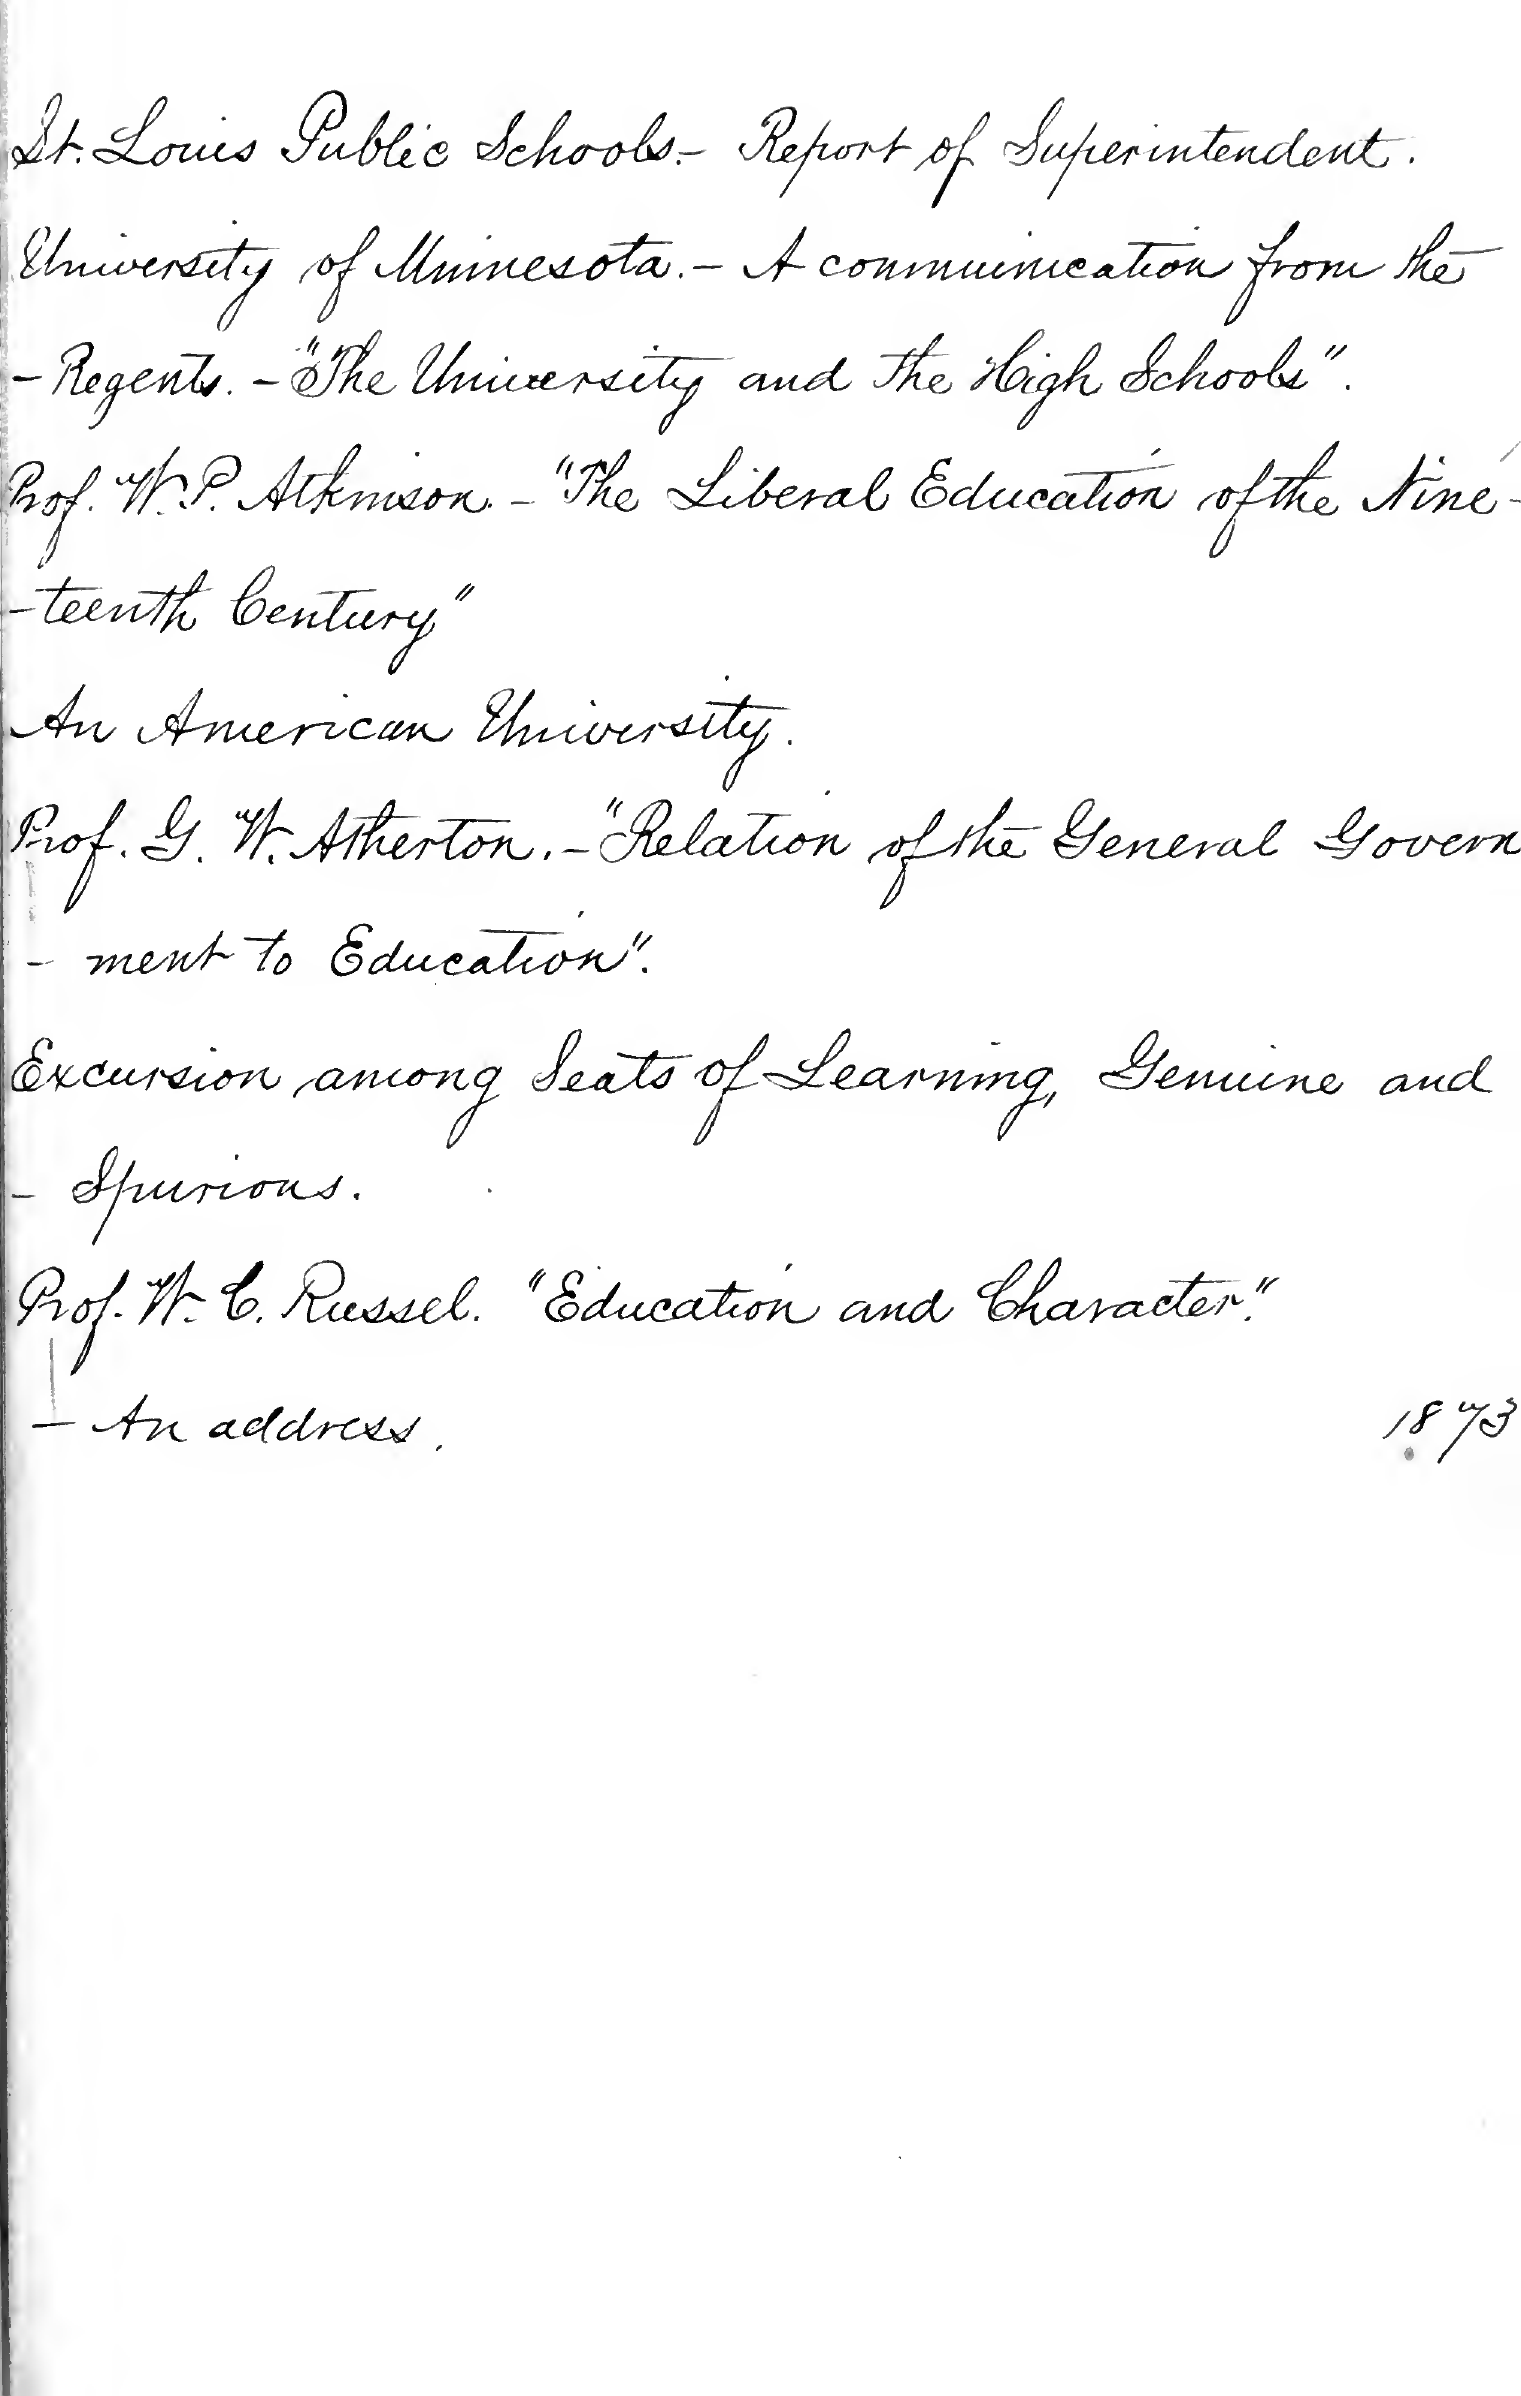 St. Louis Public Schools.- Report of Superintendent.
University of Minnesota.- A communication from the
- Regents. - "The University and the High Schools".
Prof. W. P. Atkinson. - "The Liberal Education of the Nine-
-teenth Century"
An American University.
Prof. G. W. Atherton. - "Relation of the General Govern
- ment to Education".
Excursion among Seats of Learning, Genuine and
- Spurious.
Prof. W. C. Russel. "Education and Character."
- An address. 1873